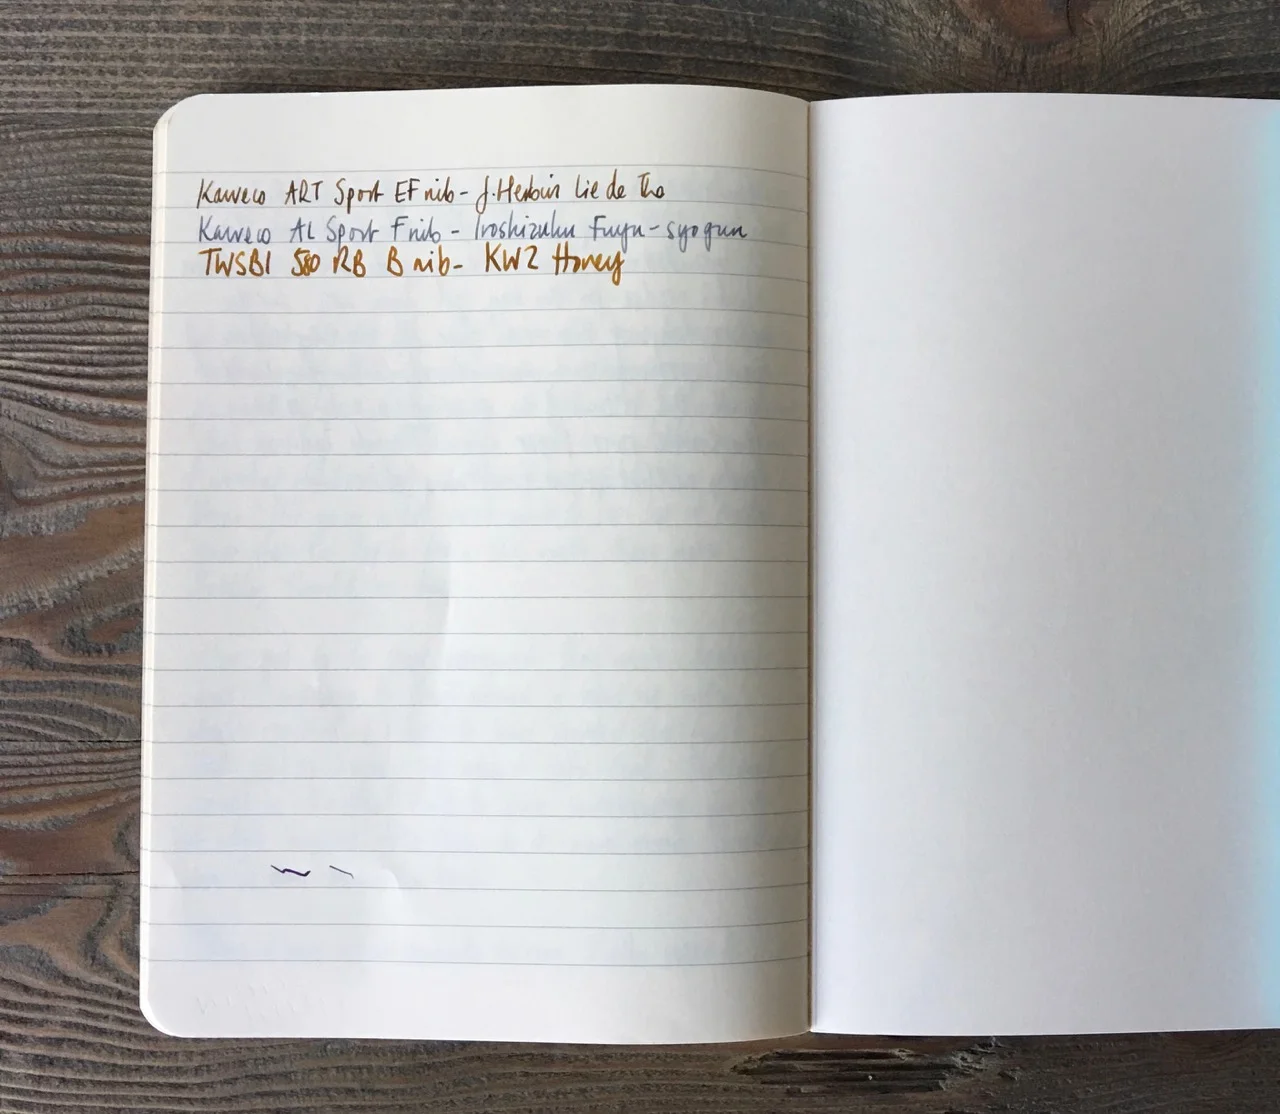 Kaweco ART Sport EF nib - J.Herbin Lie de Thé
Kaweco AL Sport F nib - Iroshizuku Fuyu-syogun
TWSBI 580 RB B nib - KWZ Honey